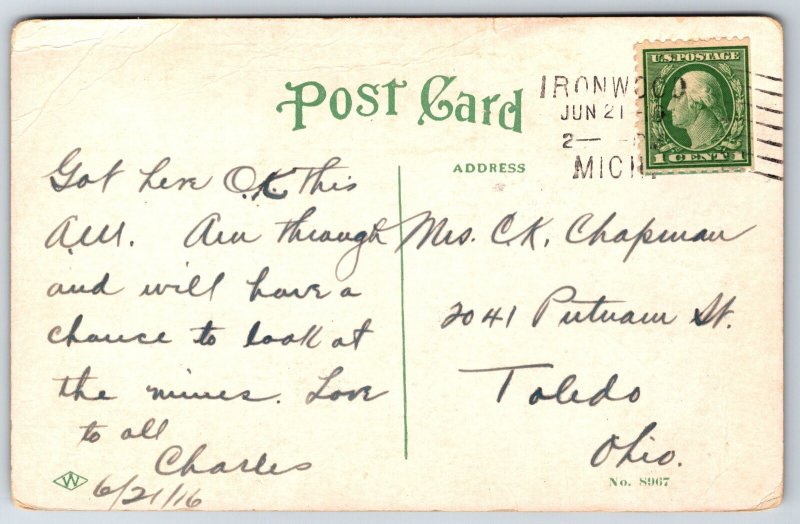 Post Card
IRONWOOD
JUN 21
2—
MICH.
U.S. POSTAGE
1 CENT 1
ADDRESS
Got here O.K. this
A.M. Am through
and will have a
chance to look at
the mines. Love
to all
Charles
6/21/16
Mrs. C.K. Chapman
2041 Putnam St.
Toledo
Ohio.
W
No. 8967